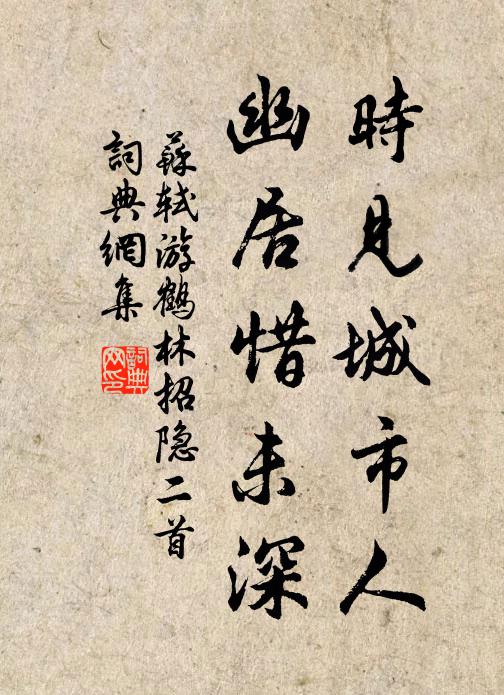 時見城市人
幽居惜未深
蘇軾游鶴林招隐二首
詞典網集
詞典
网印